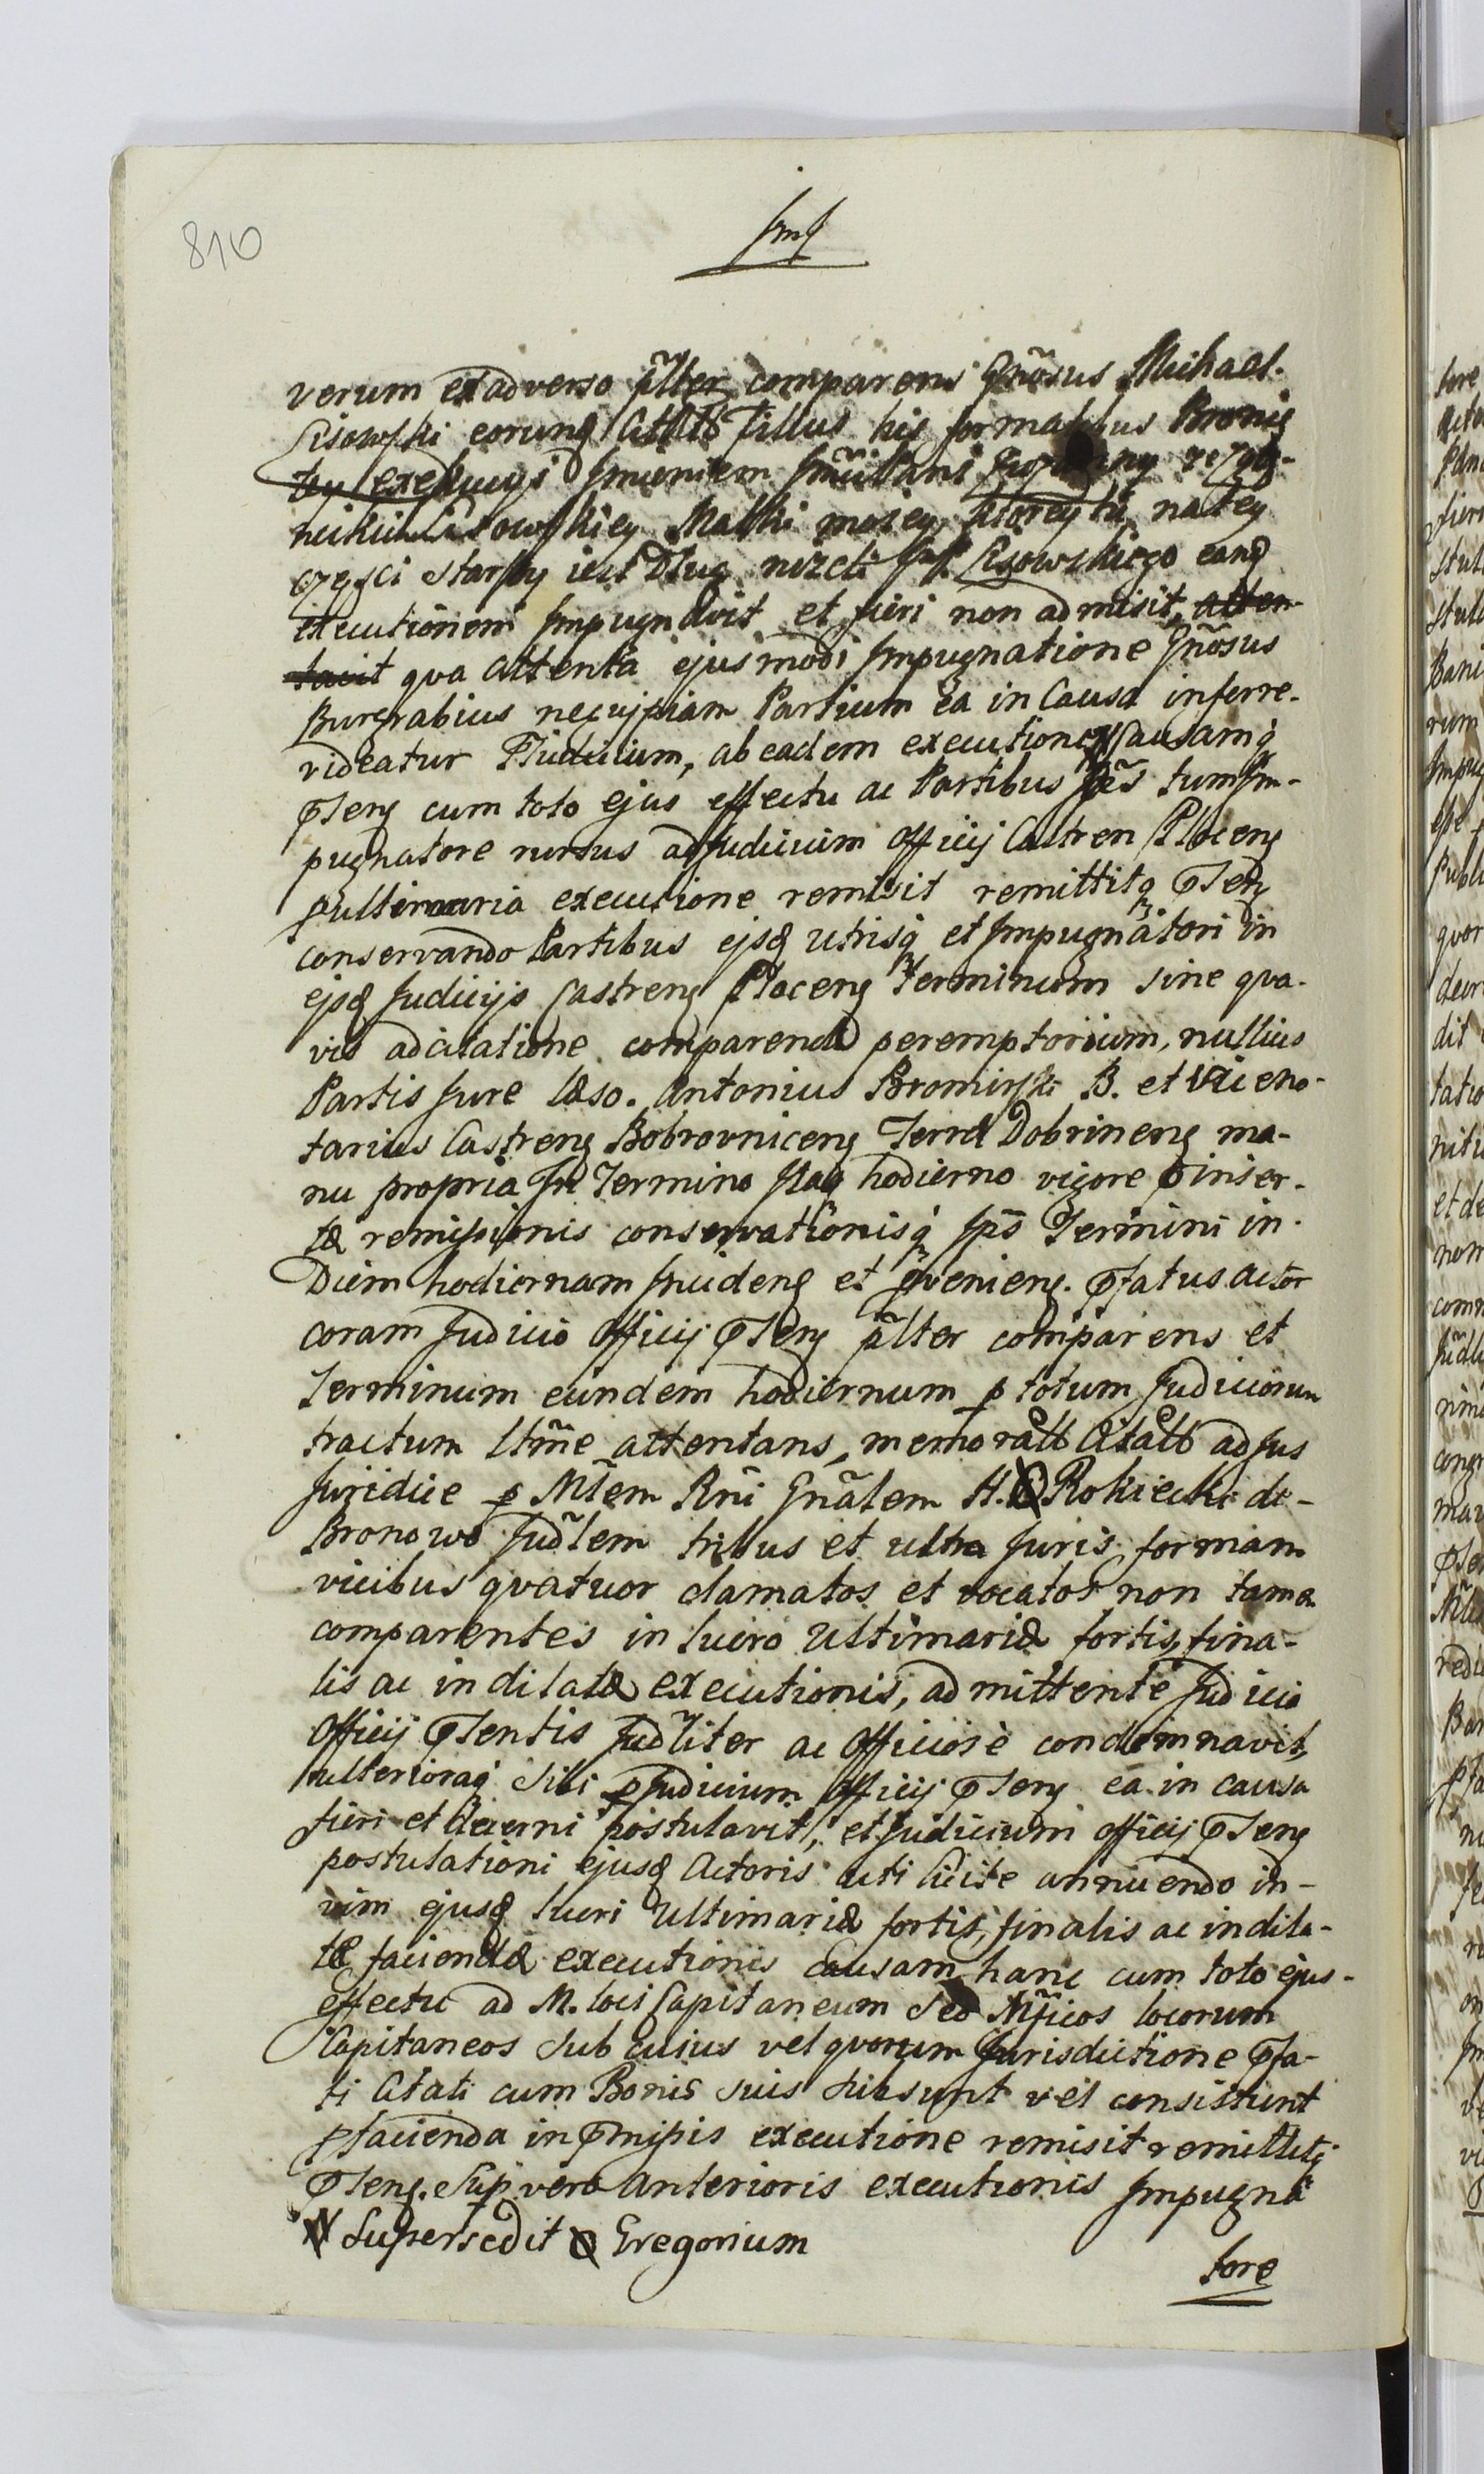 810
verum ex adverso pãlter comparens Gñosus Michael
Lisowski eorunq Citatt Filius his formalibus Bronię
tey exekucyi
Lisowskiey Matki moiey, ktorey tu na tey
części starszy iest Dług nizeli Lisowskiego eanq
executionem Impugnavit et fieri non admisit, atten-
tavit qva attenta ejusmodi Impugnatione Gñosus
Burgrabius ne cujpiam Partium ea in Causa inferre-
videatur PJudicium, ab eadem executione Causamq
PSenq cum toto ejus effectu ac Partibus tum Im-
pugnatore rursus ad Judicium Officij Castren Plocenq
pulterararia executione remisit remittitq PSenq
conservando Partibus ejsq utrisq et Impugnatori in
ejsq Judicijs Castrenq Plocenq Terminum sine qva-
vis adcitatione comparendi peremptorium, nullius
Partis Jure læso. Antonius Bromirski B. et Viceno-
tarius Castrenq Bobrovnicenq Terræ Dobrinenq ma-
nu propria In Termino Itaq hodierno vigore Pinser-
tæ remissionis conservationisq Ips Termini in
Diem hodiernam Incidenq et Pvenienq. Pfatus actor
coram Judicio Officij PSenq pãlter comparens et
Terminum eundem hodiernum p totum Judiciorum
tractum ltm̃e attentans, memoratt Citatt ad Jus
Juridice p Mĩem Rñi Gnãlem H. Rokiecki de
Bronowo Judlem tribus et ultra Juris formam
vicibus qvatuor clamatos et vocatos non tamen
comparentes in lucro Ultimariæ fortis, fina-
lis ac indilatæ executionis, admittente Judicio
Officij PSentis Judliter ac Officiosè condemnavit,
ulterioraq sibi p Judicium Officij PSenq ea in causa
fieri et decerni postulavit, et Judicium officij PSenq
postulationi ejusq Actoris uti licite annuendo in
vim ejusq lucri Ultimariæ fortis, finalis ac indila-
tæ faciendæ executionis causam hanc cum toto ejus
effectu ad M. loci Capitaneum Seo Mficos locorum
Capitaneos sub cuius vel qvorum Jurisdictione Pfa-
ti Citati cum Bonis suis subsunt vel consistunt
p facienda in Pmissis executione remisit remittitq
PSenq. Sup vero anterioris executionis Impugna
Supersedit Gregorium
tore